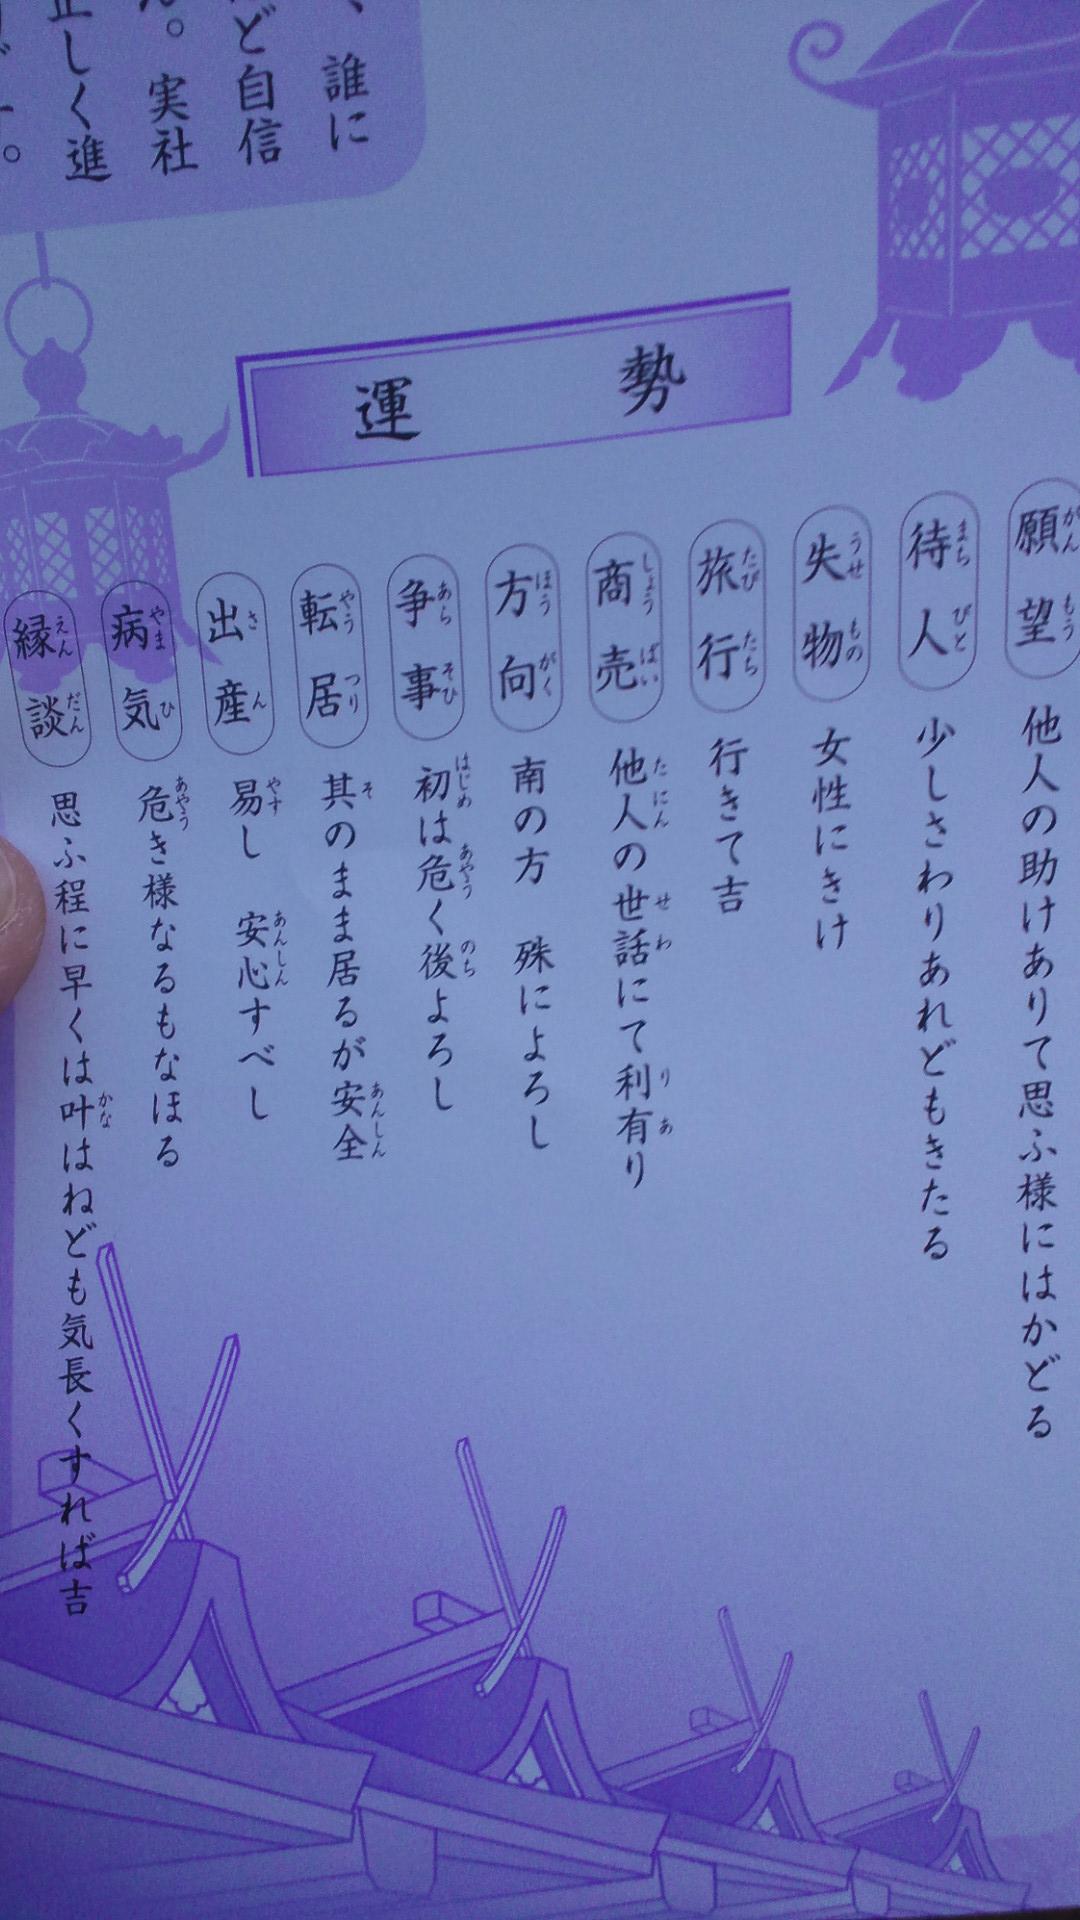 、誰に
ど自信
。実社
正しく進
。
運勢
願望 他人の助けありて思ふ様にはかどる
待人 少しさわりあれどもきたる
失物 女性にきけ
旅行 行きて吉
商売 他人の世話にて利有り
方向 南の方 殊によろし
争事 初は危く後よろし
転居 其のまま居るが安全
出産 易し 安心すべし
病気 危き様なるもなほる
縁談 思ふ程に早くは叶はねども気長くすれば吉